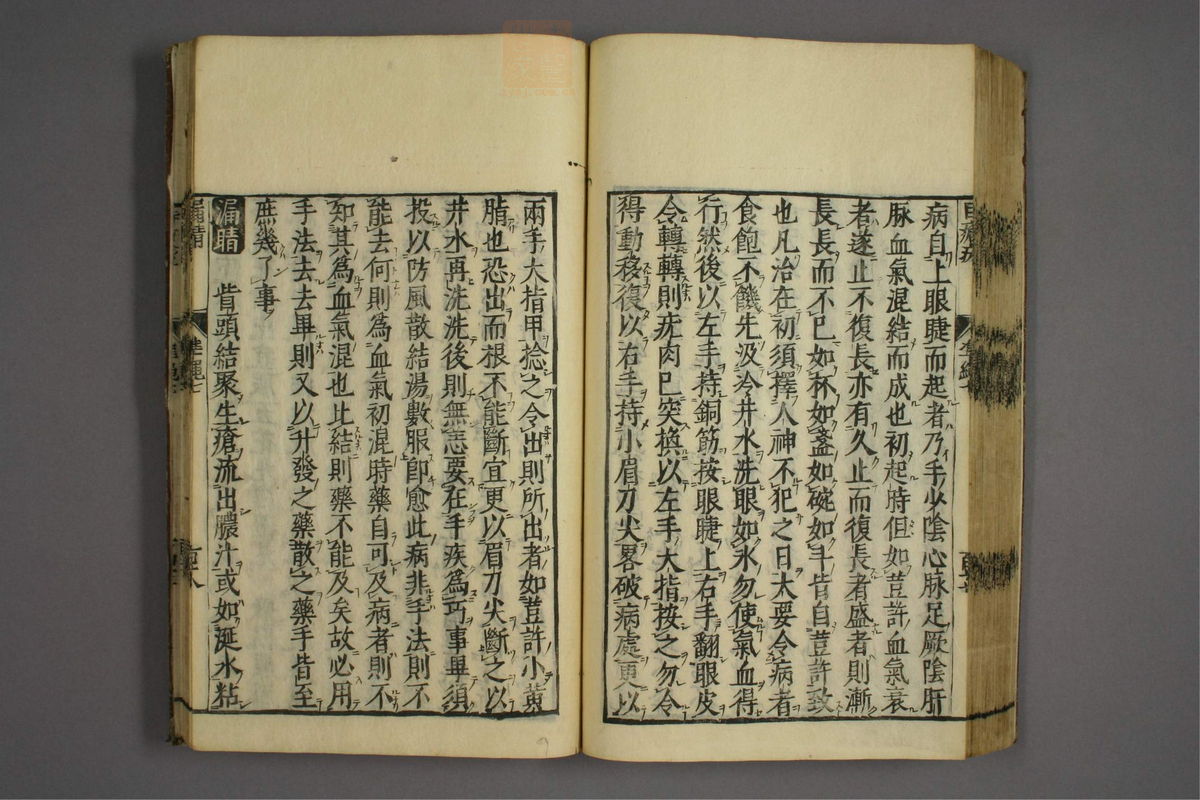 病自上眼睫而起者乃手少陰心脉足厥陰肝
脉血氣混結而成也初起時但如荳許血氣衰
者遂止不復長亦有久止而復長者盛者則漸
長長而不已如杯如盞如碗如斗皆自荳許致
也凡治在初須擇人神不犯之日大要令病者
食飽不饑先汲冷井水洗眼如冰勿使氣血得
行然後以左手持銅筯按眼睫上右手翻眼皮
令轉轉則疣肉已突換以左手大指按之勿令
得動移復以右手持小眉刀尖畧破病處更以
兩手大指甲捻之令出則所出者如荳許小黄
脂也恐出而根不能斷宜更以眉刀尖斷之以
井水再洗洗後則無恙要在手疾爲巧事畢須
投以防風散結湯數服卽愈此病非手法則不
能去何則為血氣初混時藥自可及病者則不
知其爲血氣混也比結則藥不能及矣故必用
手法去去畢則又以升發之藥散之藥手皆至
庶幾了事
漏睛
眥頭結聚生瘡流出膿汁或如涎水粘